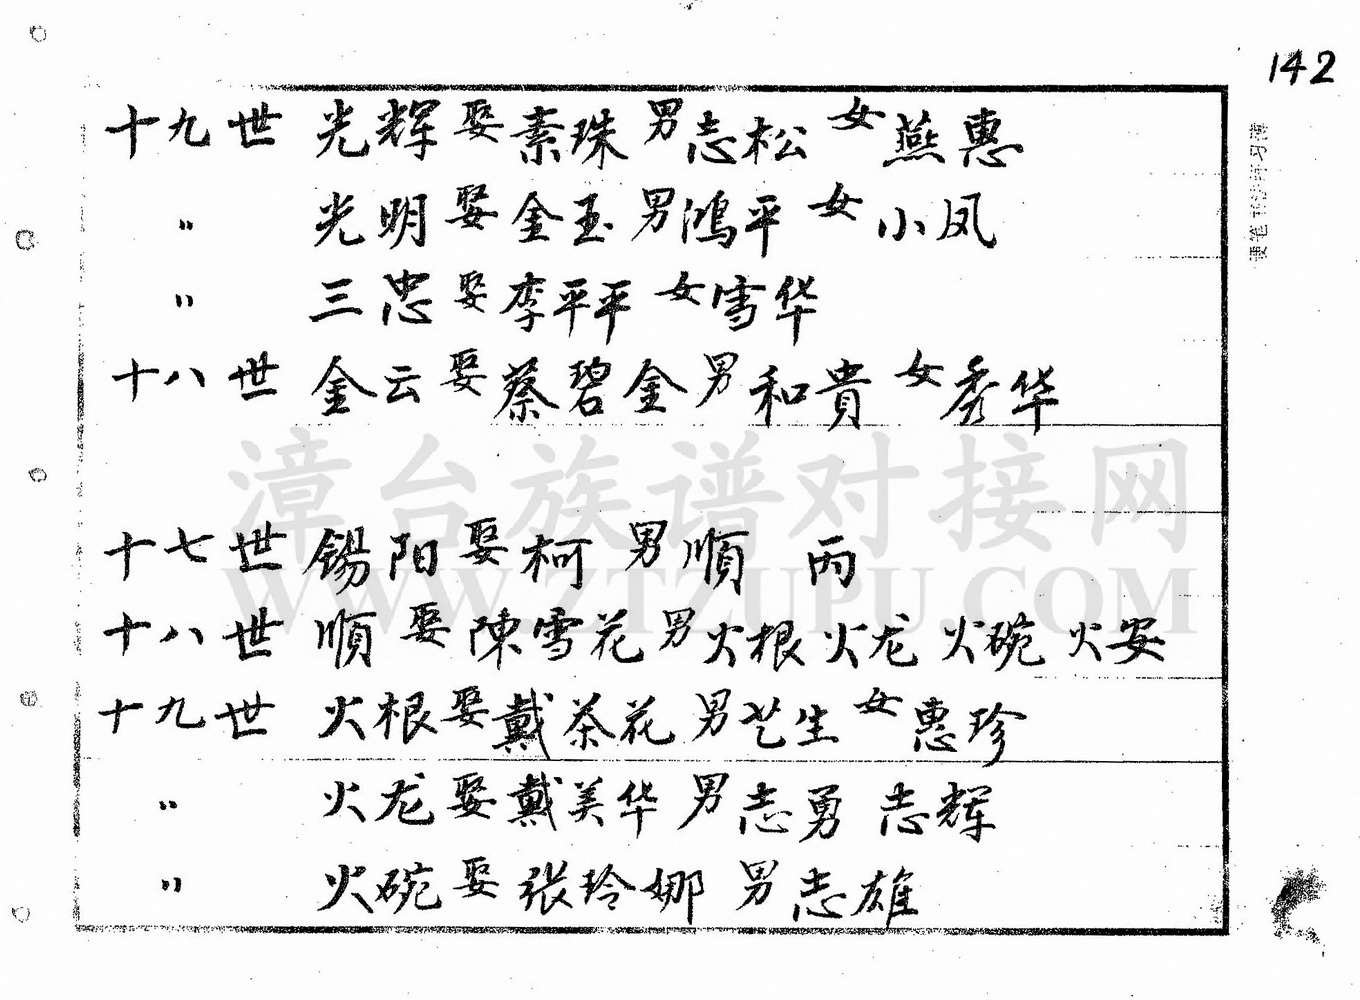 142
十九世 光辉 娶 素珠 男 志松 女 燕惠
〃 光明 娶 金玉 男 鸿平 女 小凤
〃 三忠 娶 李平平 女 雪华
十八世 金云 娶 蔡碧金 男 和貴 女 秀华
漳台族谱对接网
WWW.ZTZUPU.COM
十七世 锡阳 娶 柯 男 順 丙
十八世 順 娶 陳雪花 男 火根 火龙 火碗 火安
十九世 火根 娶 戴茶花 男 艺生 女 惠珍
〃 火龙 娶 戴美华 男 志勇 志辉
〃 火碗 娶 张玲娜 男 志雄